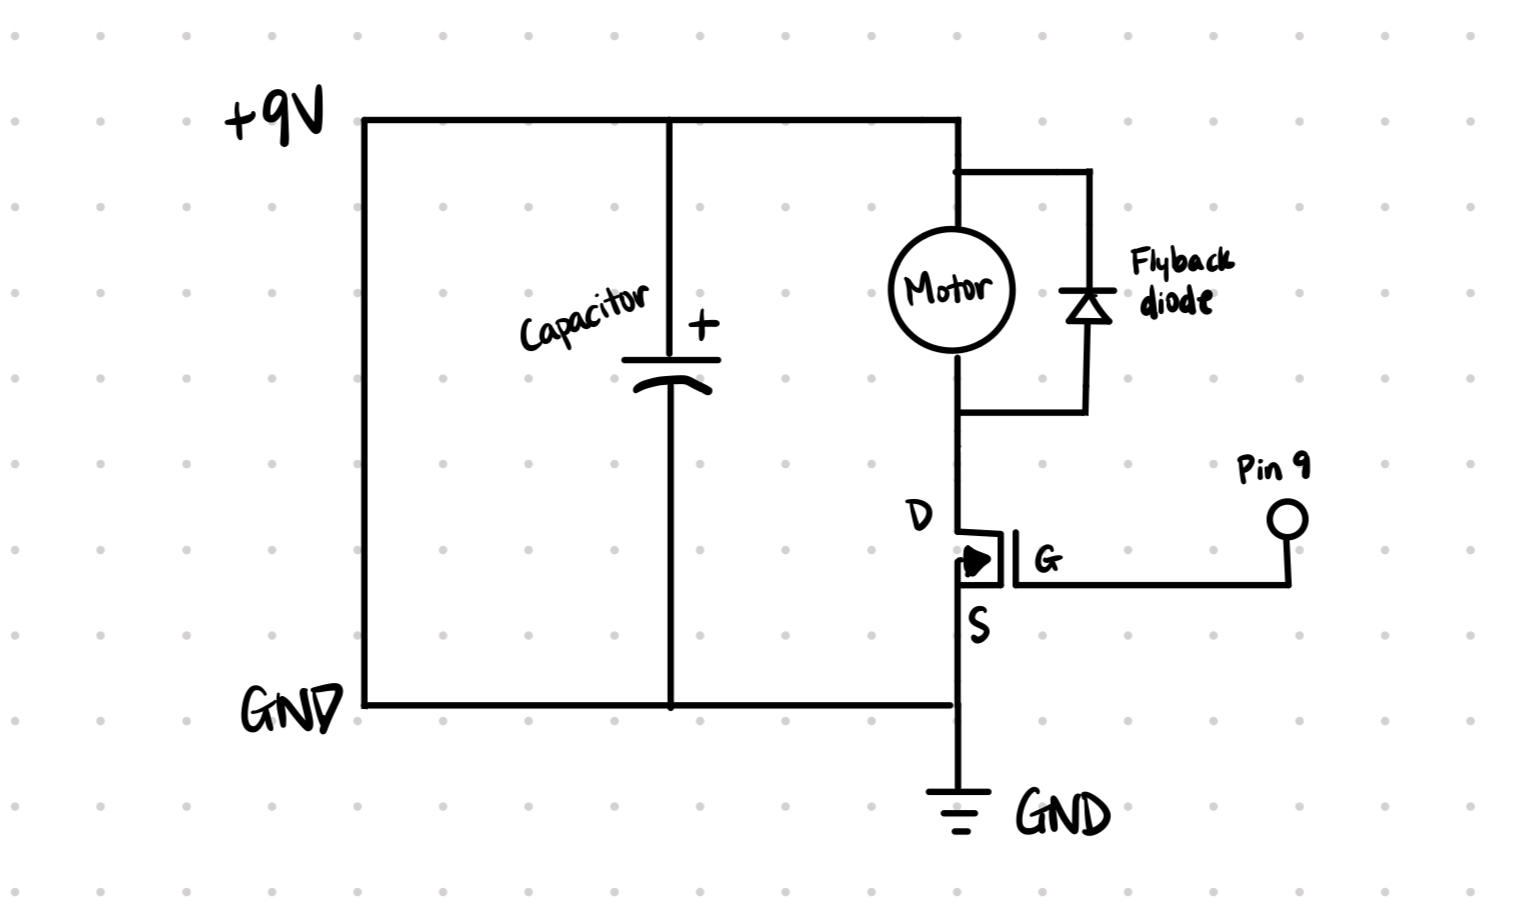 +9V
Capacitor
+
Motor
Flyback
diode
Pin 9
D
G
S
GND
GND